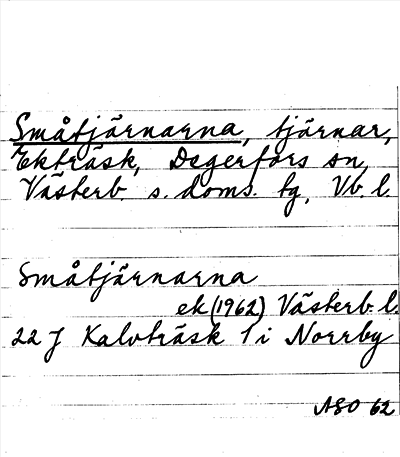 Småtjärnarna, tjärnar,
Ekträsk, Degerfors sn,
Västerb. s. doms. tg, Vb. l.
Småtjärnarna
ek (1962) Västerb. l.
22 J Kalvträsk 1 i Norrby
ASO 62